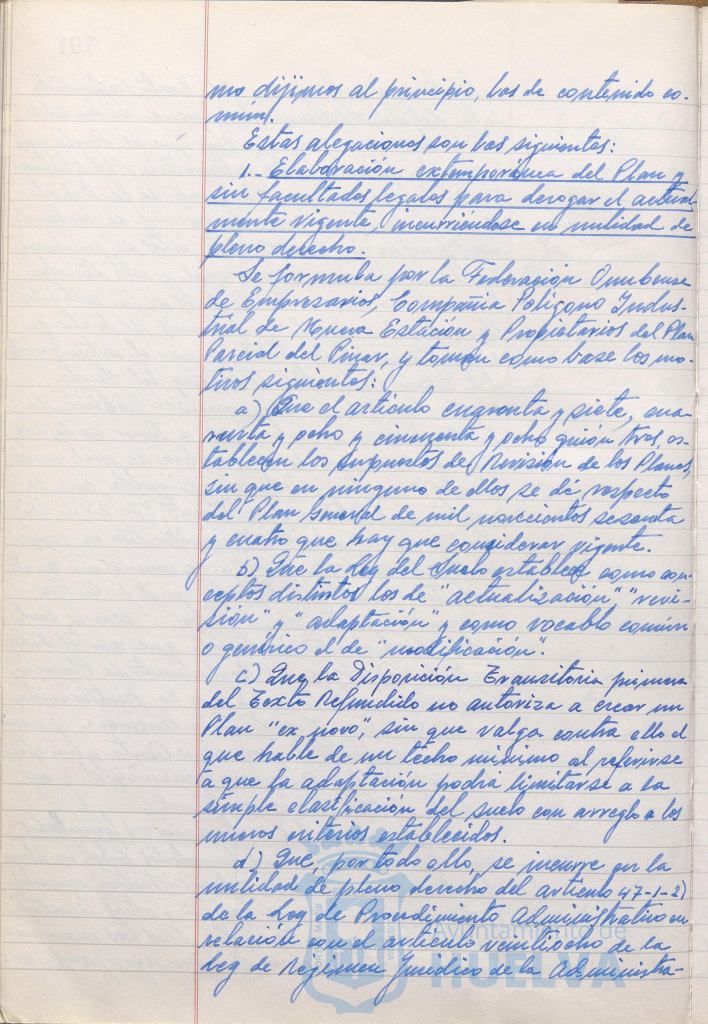 mo dijimos al principio, los de contenido co-
mún.
Estas alegaciones son las siguientes:
1.- Elaboración extemporánea del Plan y
sin facultades legales para derogar el actual
mente vigente, incurriéndose en nulidad de
pleno derecho.
Se formula por la Federación Onubense
de Empresarios, Compañia Polígono Indus-
trial de Nueva Estación y Propietarios del Plan
Parcial del Pinar, y toman como base los mo-
tivos siguientes:
a) Que el artículo cuarenta y siete, cua-
renta y ocho y cincuenta y ocho guión tres, es-
tablecen los supuestos de Revisión de los Planes,
sin que en ninguno de ellos se dé respecto
del Plan General de mil novecientos sesenta
y cuatro que hay que considerar vigente.
b) Que la Ley del Suelo establece como con-
ceptos distintos los de "actualización", "revi-
sión" y "adaptación" y como vocablo común
o genérico el de "modificación".
c) Que la Disposición Transitoria primera
del Texto Refundido no autoriza a crear un
Plan "ex novo", sin que valga contra ello el
que hable de un techo mínimo al referirse
a que la adaptación podrá limitarse a la
simple clasificación del suelo con arreglo a los
nuevos criterios establecidos.
d) Que, por todo ello, se incurre en la
nulidad de pleno derecho del artículo 47-1-2)
de la Ley de Procedimiento Administrativo en
relación con el artículo veintiocho de la
Ley de Régimen Jurídico de la Administra-
Ayuntamiento de
HUELVA